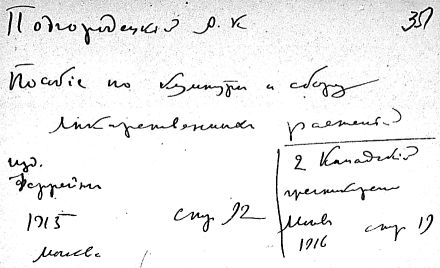 Подгородецкий А. К 351
Пособие по культуре и сбору
лекарственных растений
изд.
Феррейн
1915
Москва
стр 92
2 Канадский
Москва
1916
стр 19